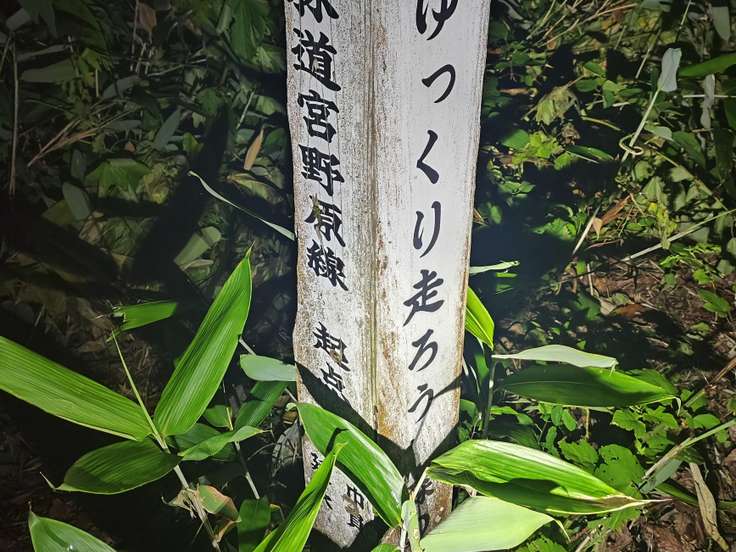 道宮野原線 起点
ゆっくり走ろう